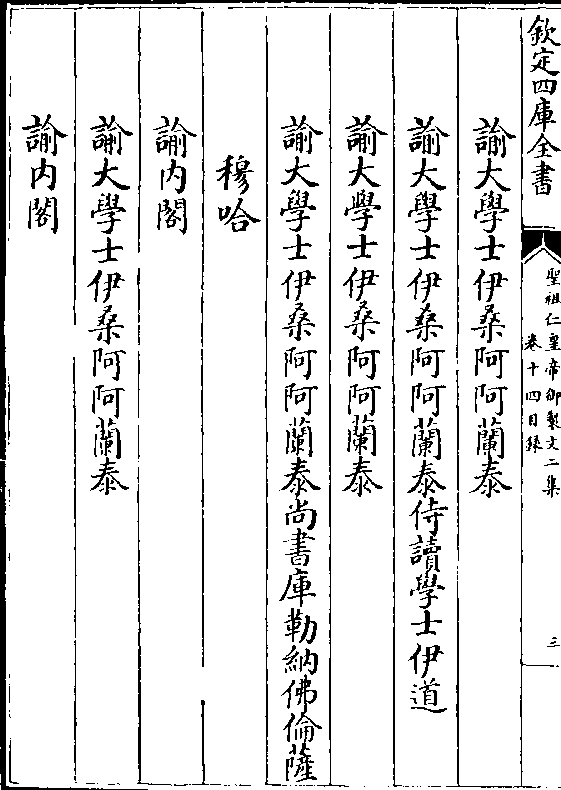 欽定四庫全書
聖祖仁皇帝御製文二集
卷十四目録
三
諭大學士伊桑阿阿蘭泰
諭大學士伊桑阿阿蘭泰侍讀學士伊道
諭大學士伊桑阿阿蘭泰
諭大學士伊桑阿阿蘭泰尚書庫勒納佛倫薩
穆哈
諭内閣
諭大學士伊桑阿阿蘭泰
諭内閣